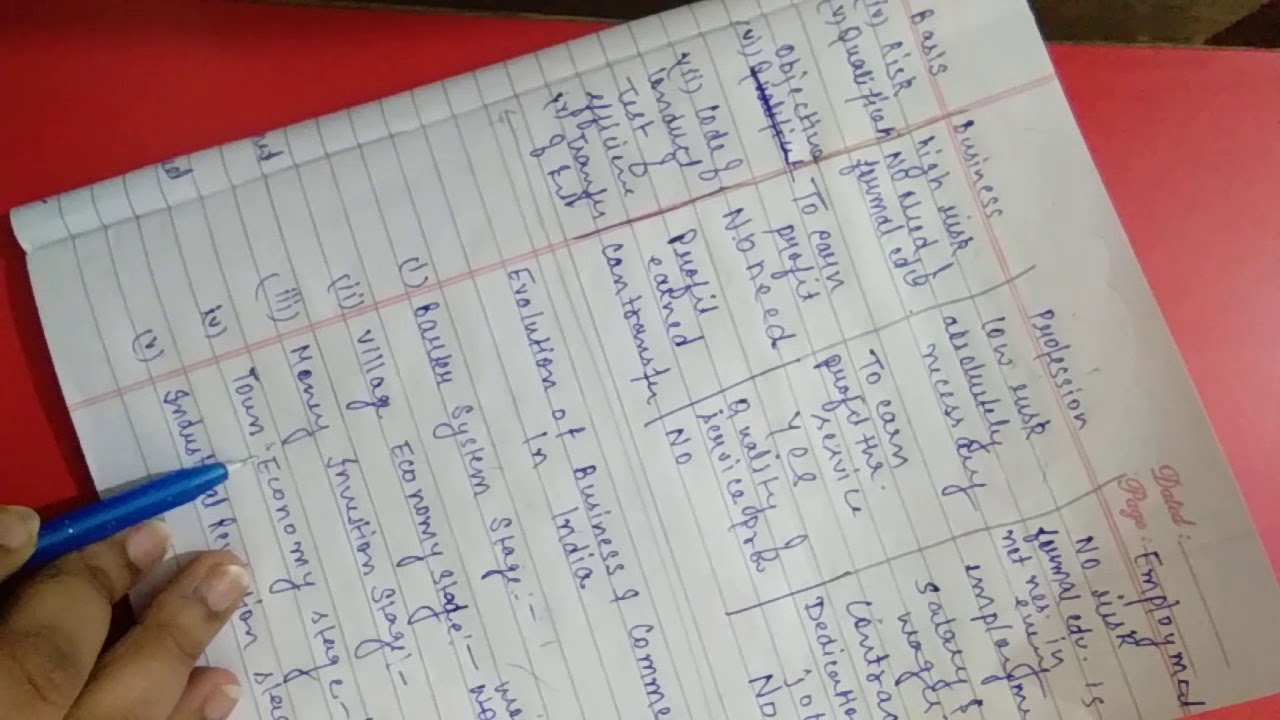 Dated:
Page:
Basis Business Profession Employmed
(iv) Risk high risk low risk No risk
(v) Qualification No need of formal edu absolutely necessary formal edu. is not nes. in every employme
(vi) objective To earn profit To earn profit the. service Salary & wages.
vii) Code of conduct No need Yes Contrac
Test of efficienc Profit earned Quality of service prk Dedicatio job
ix) Transfer of Int can transfer No No
Evolution of Business & Comme
In India
(i) Banker System Stage:-
(ii) Village Economy Stage:-
(iii) Money Invention Stage:-
iv) Town Economy stage-
(v) Industrial